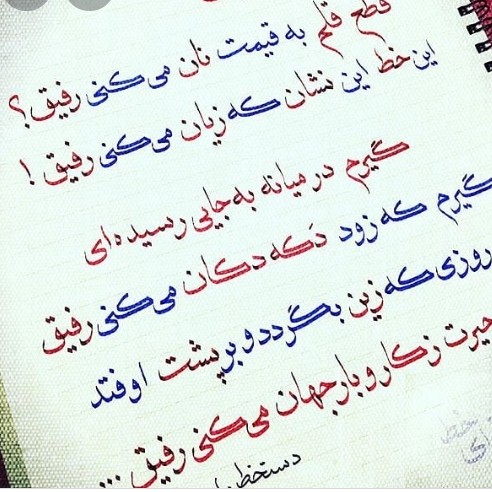 قطع قلم به قیمت نان می‌کنی رفیق؟
این خط این نشان که زیان می‌کنی رفیق!
گیرم در میانه به جایی رسیده‌ای
گیرم که زود دَکه دکان می‌کنی رفیق
روزی که زین بگردد و بر پشت اوفتد
حیرت ز کار و بار جهان می‌کنی رفیق...
دستخط